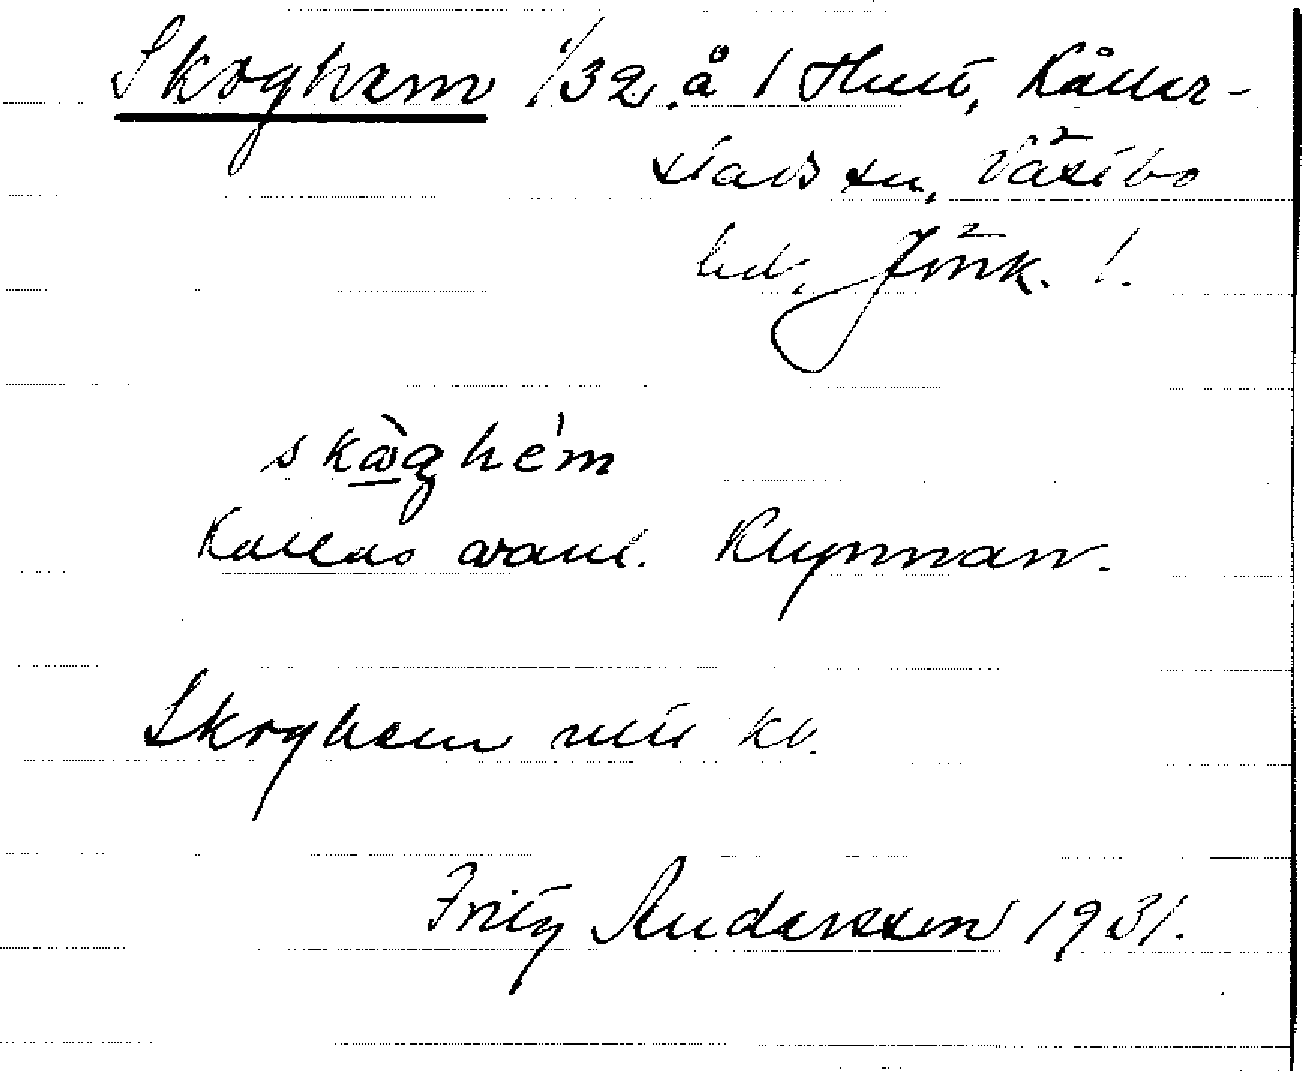 Skoghem 1/32 å 1 Hult, Kåller-
stads sn, Västbo
hd, Jönk. !.
skòghém
Kallas även. Klynnan.
Skoghem nytt kv.
Fritz Andersson 1931.